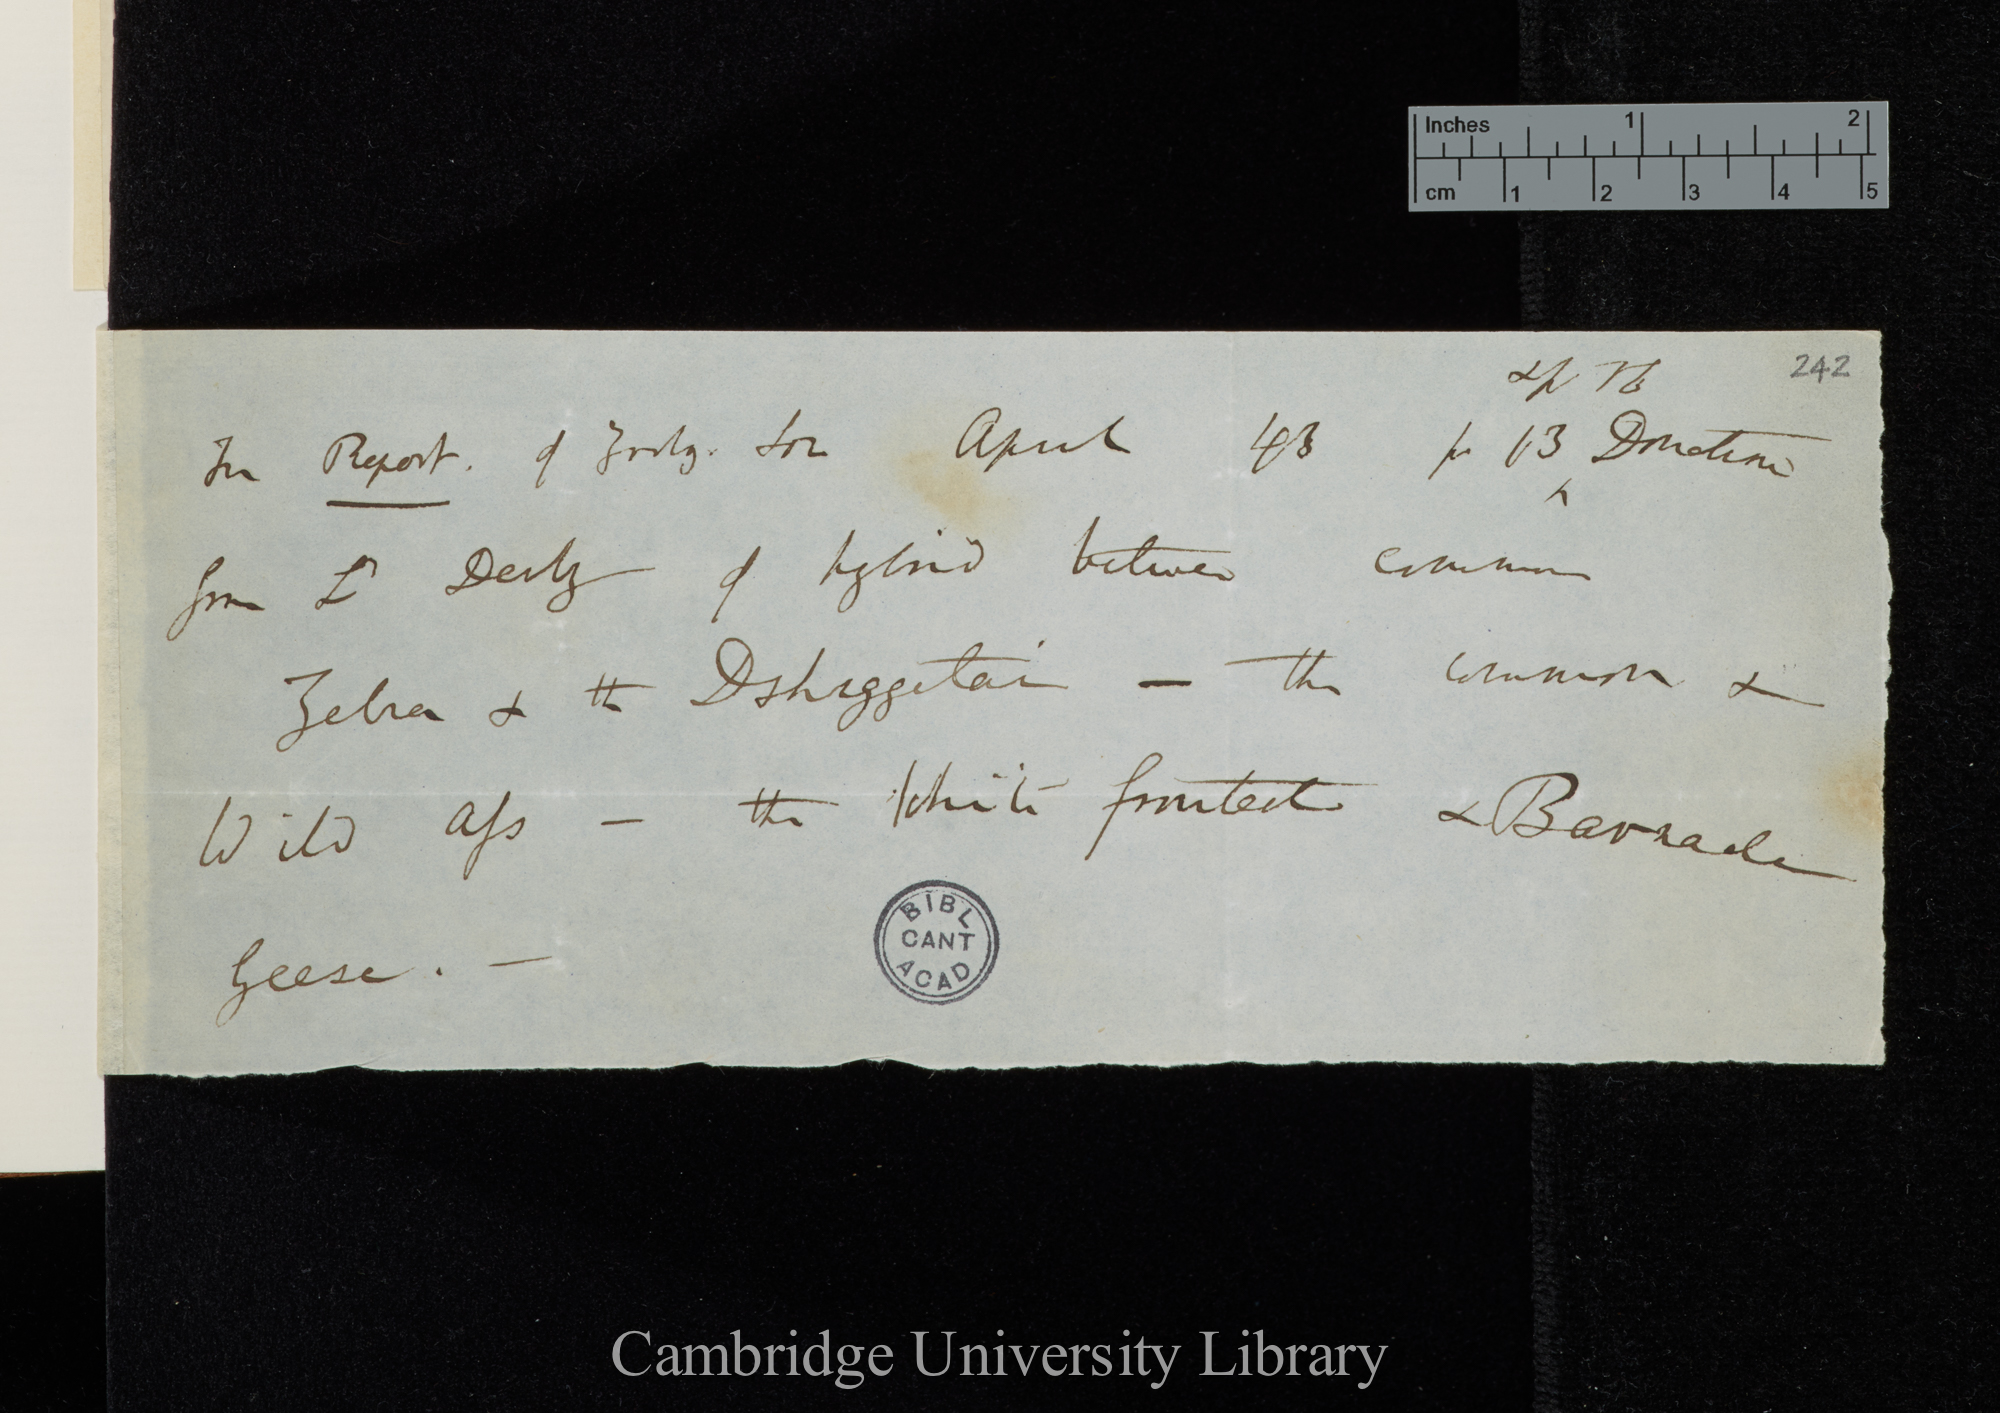 242
& p 16
In Report. of Zoolog. Soc April 43 p 13 ^ Donation
from Ld Derby of hybrid between common
Zebra & the Dshiggetai — the common &
Wild Ass — the White fronted & Barnacle
Geese. —
BIBL
CANT
ACAD
Inches 1 2
cm 1 2 3 4 5
Cambridge University Library